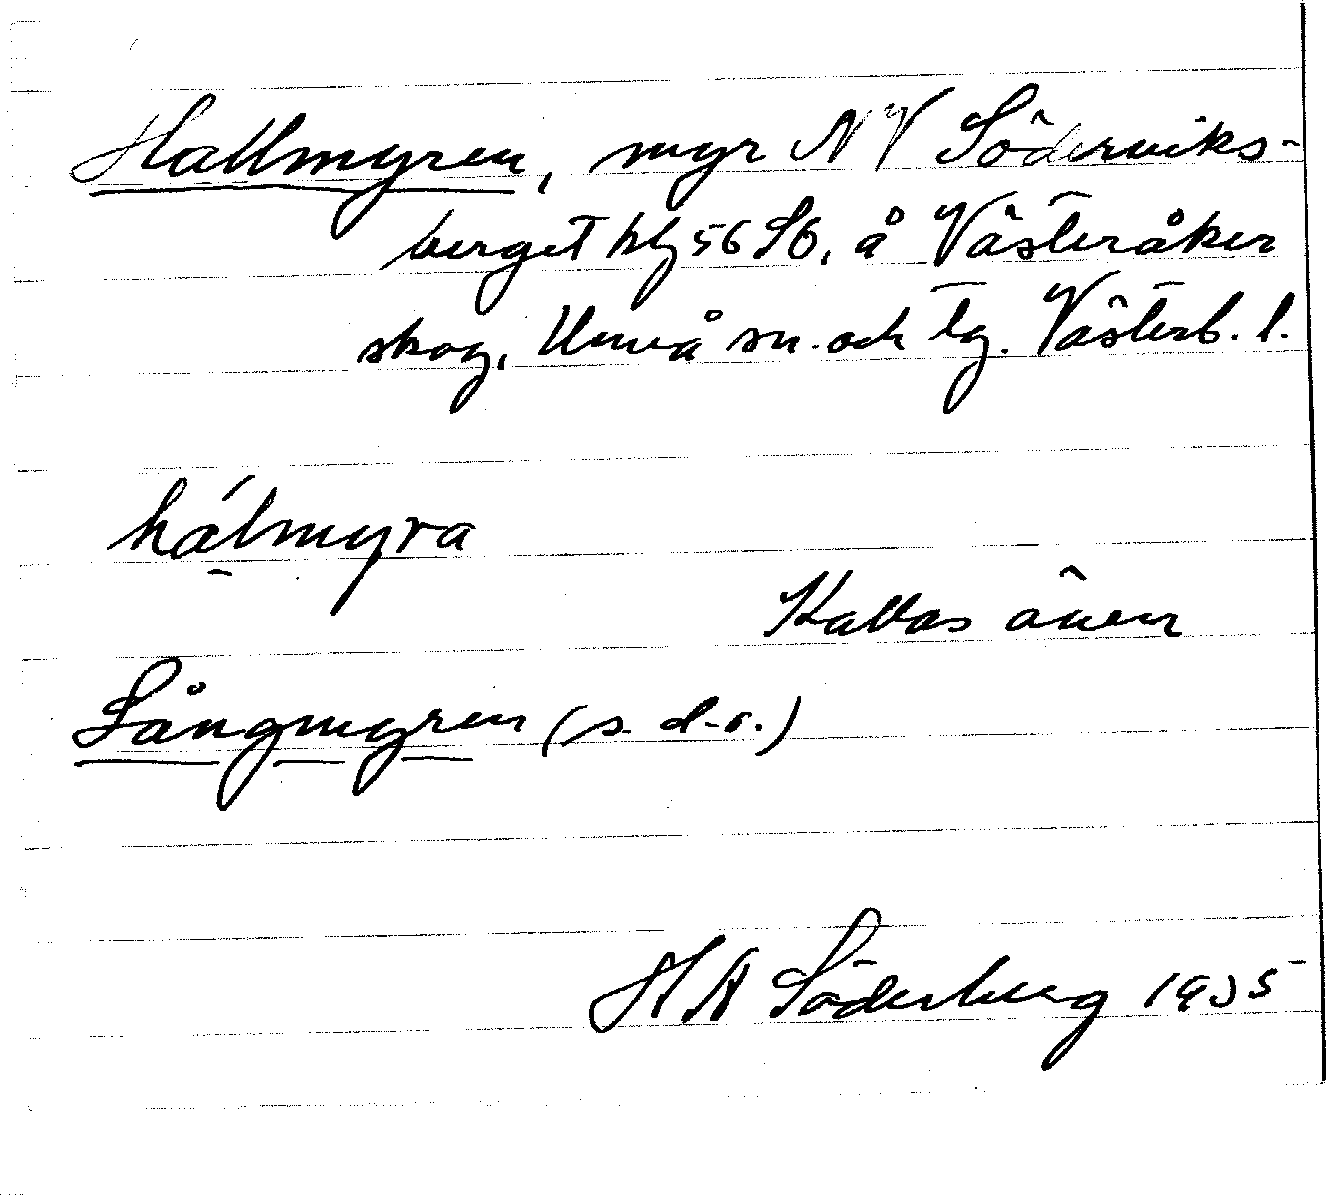 Hallmyren, myr NV Söderviks-
berget kbl 56 SO, å Västeråker
skog, Umeå sn. och tg. Västerb. l.
hálmyra
Kallas även
Långmyren (s. d. o.)
H A Söderberg 1935